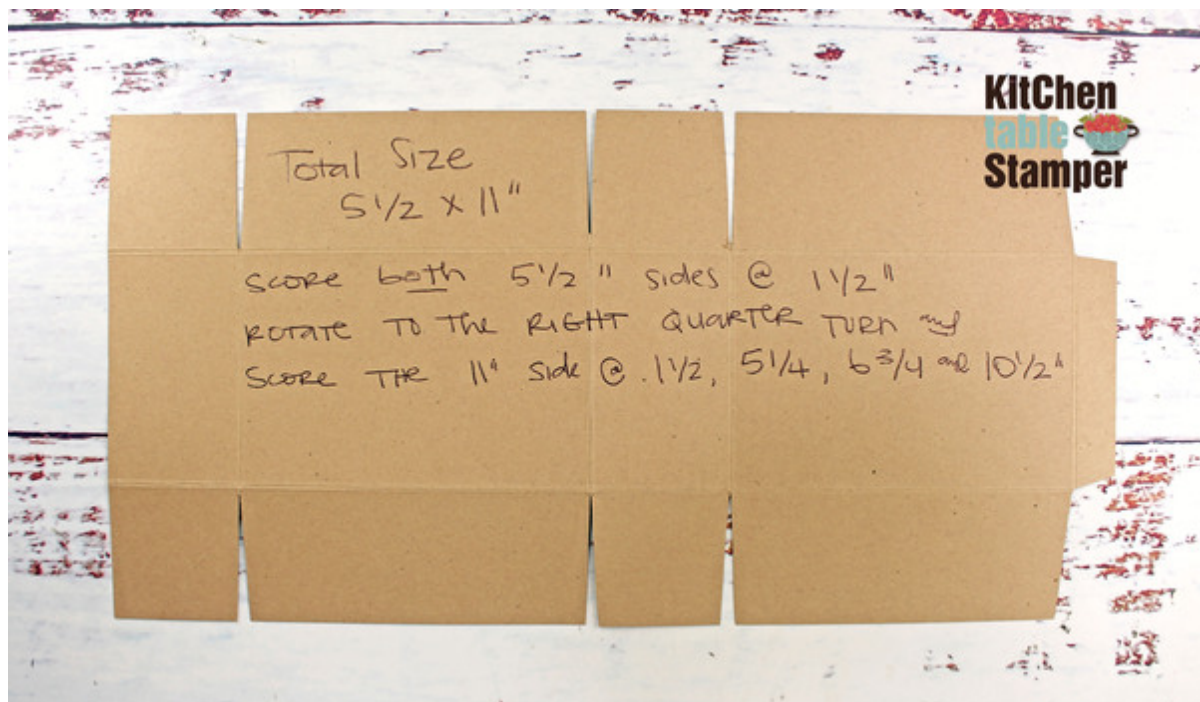 KitChen
table
Stamper
Total Size
5 1/2 x 11"
SCORE both 5 1/2" sides @ 1 1/2"
ROTATE TO The RIGHT QUARTER TURN and
SCORE THE 11" side @ .1 1/2, 5 1/4, 6 3/4 and 10 1/2"